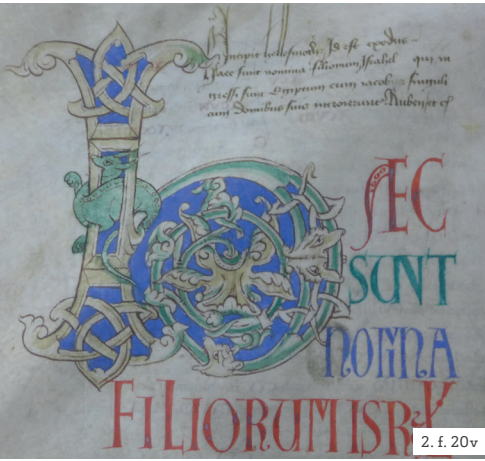 Incipit Id est exodus
Haec sunt nomina filiorum Israhel qui in
gressi sunt Egiptum cum iacob singuli
cum domibus suis introierunt. Ruben
hÆC
SUNT
NOMINA
FILIORUM ISRL
2. f. 20v